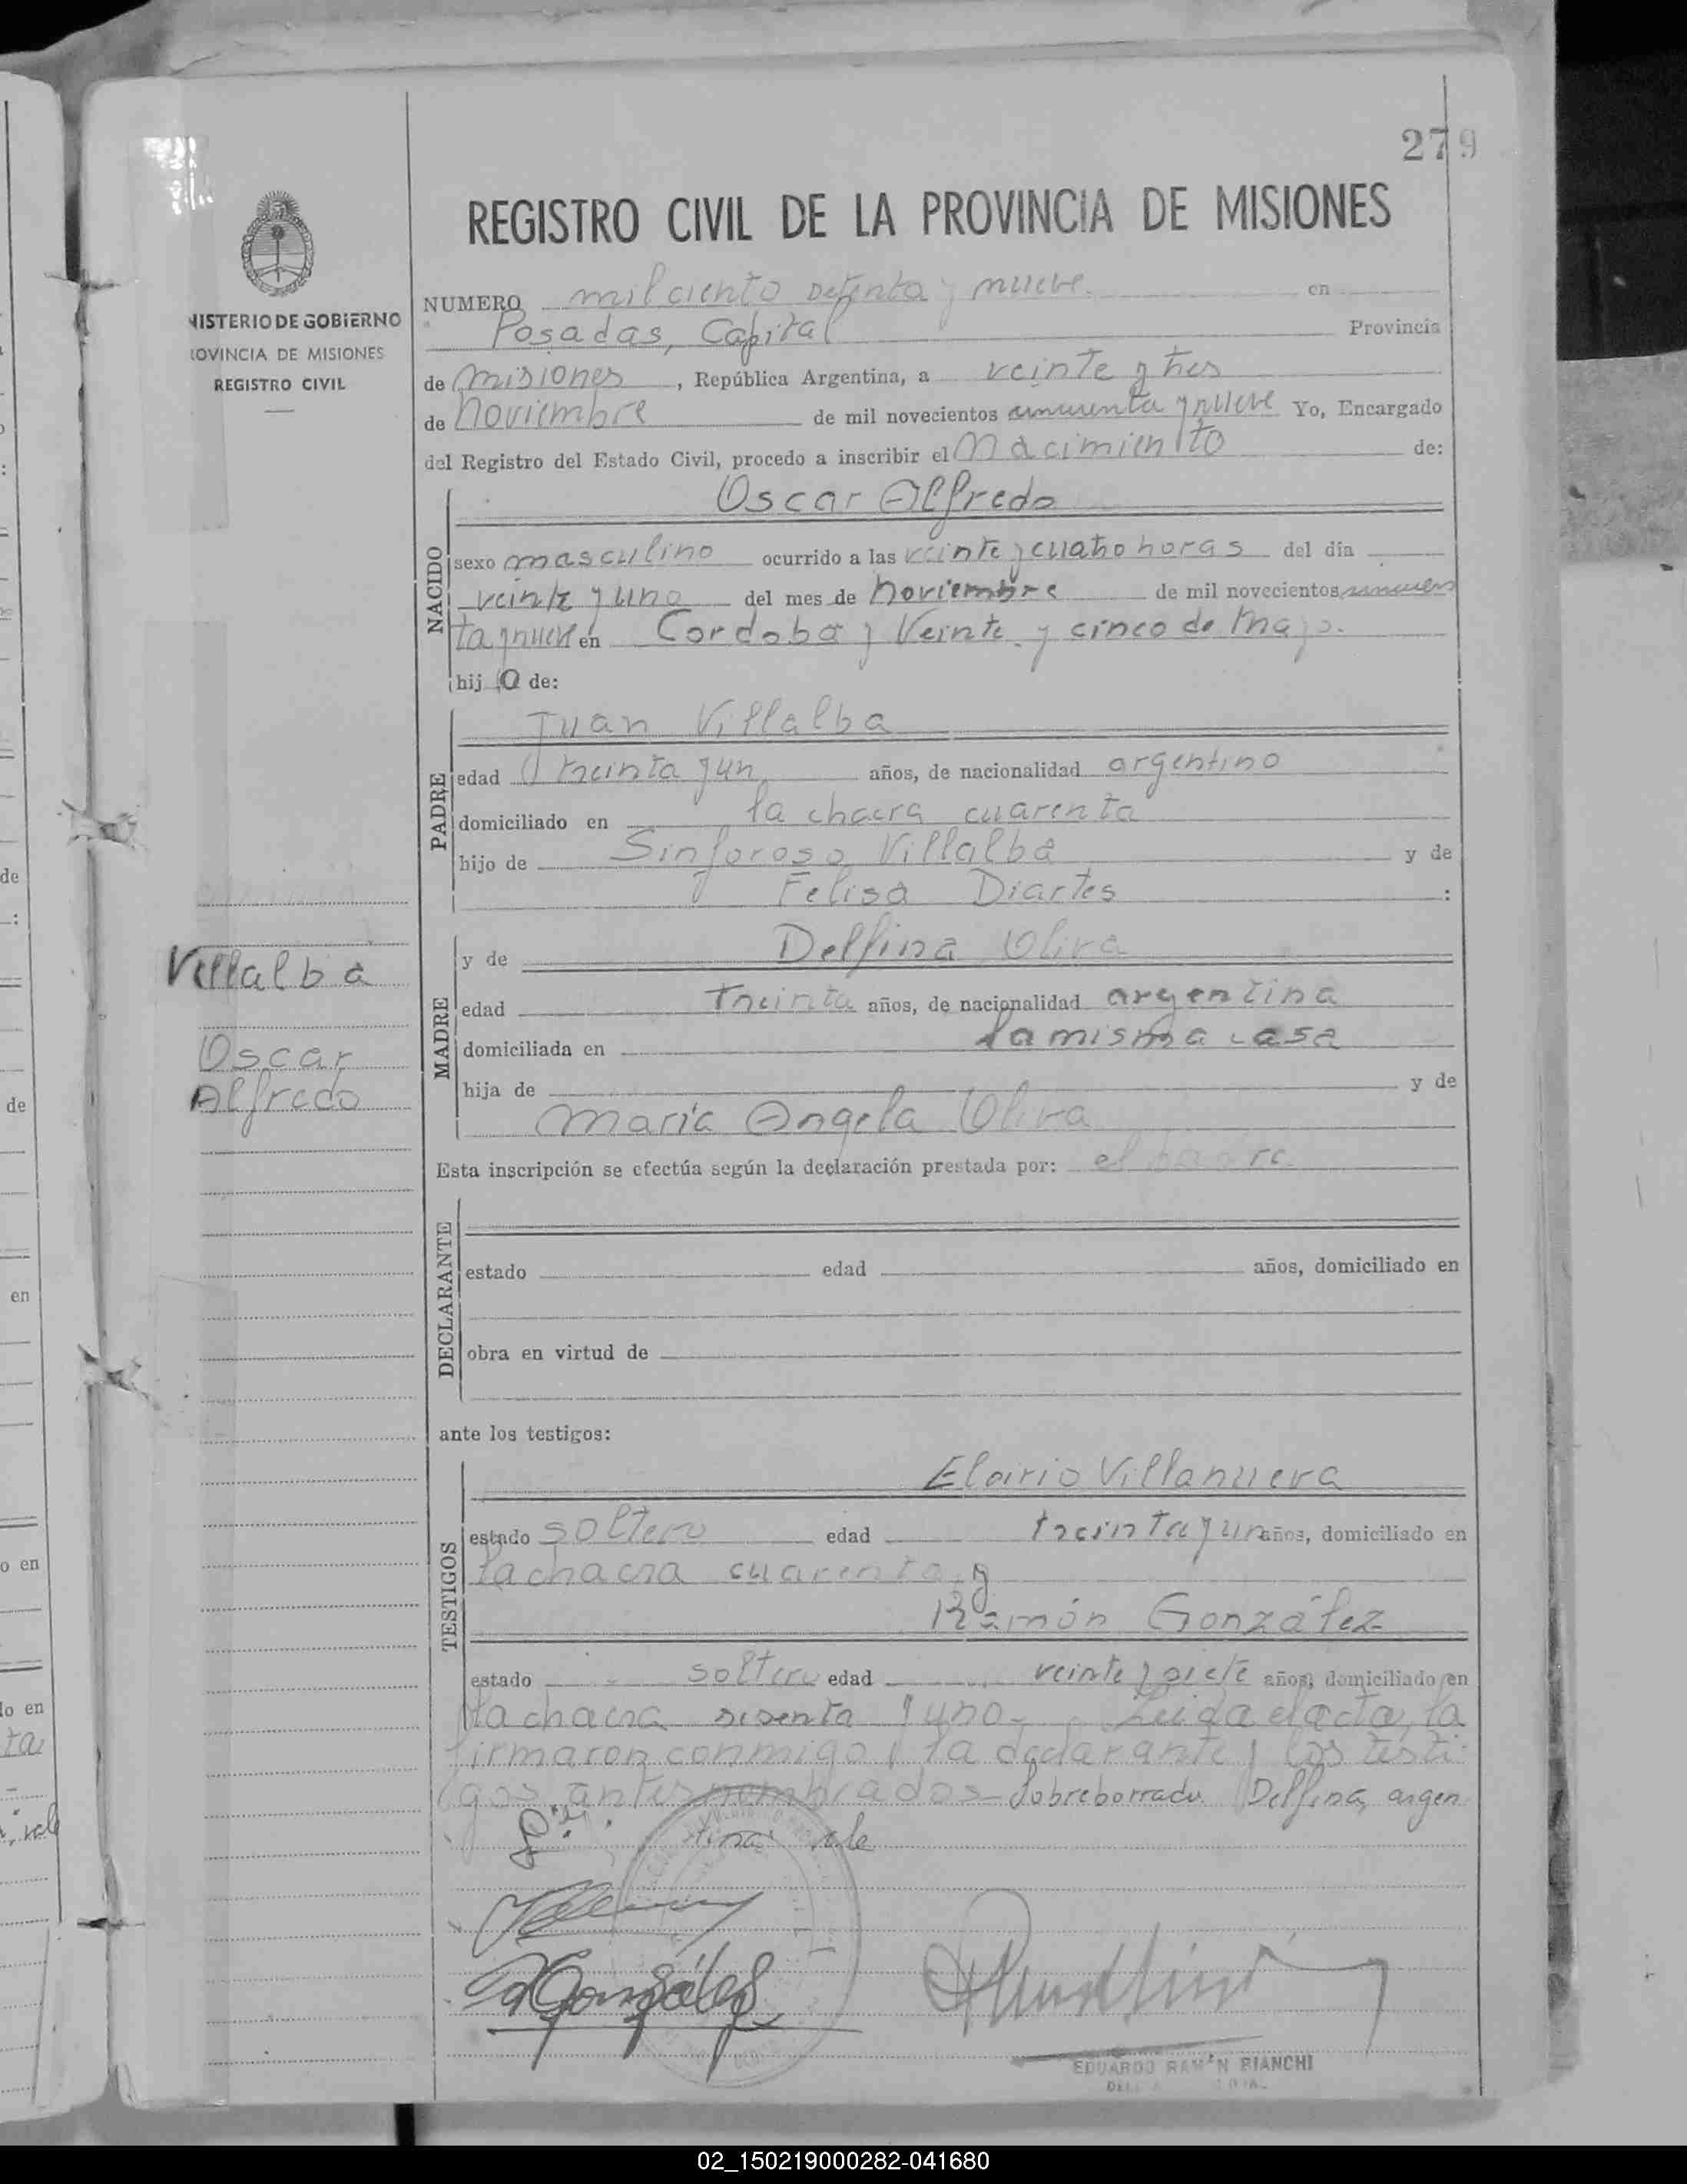 279
REGISTRO CIVIL DE LA PROVINCIA DE MISIONES
NISTERIO DE GOBIERNO
ROVINCIA DE MISIONES
REGISTRO CIVIL
NUMERO mil ciento setenta y nueve en
Posadas, Capital Provincia
de Misiones, República Argentina, a veinte y tres
de Noviembre de mil novecientos cincuenta y nueve Yo, Encargado
del Registro del Estado Civil, procedo a inscribir el Nacimiento de:
Oscar Alfredo
NACIDO
sexo masculino ocurrido a las veinte y cuatro horas del día
veinte y uno del mes de Noviembre de mil novecientos cincuen
ta y nueve en Cordoba y Veinte y cinco de Mayo.
hijo de:
Juan Villalba
PADRE
edad treinta y un años, de nacionalidad argentino
domiciliado en la chacra cuarenta
hijo de Sinforoso Villalba y de
Felisa Diartes :
Villalba
Oscar
Alfredo
MADRE
y de Delfina Oliva
edad treinta años, de nacionalidad argentina
domiciliada en la misma casa
hija de y de
María Angela Oliva
Esta inscripción se efectúa según la declaración prestada por: el padre
DECLARANTE
estado edad años, domiciliado en
obra en virtud de
ante los testigos:
TESTIGOS
Villanueva
estado soltero edad treinta y un años, domiciliado en
la chacra cuarenta y
Ramón González
estado soltero edad veinte y siete años, domiciliado en
la chacra sesenta y uno- Leida el acta, la
firmaron conmigo, la declarante y los testi
gos antes nombrados- Sobreborrado Delfina, argen
tina vale
RGonzález
EDUARDO RAMÓN BIANCHI
de
:
de
en
o en
lo en
ta
vale
02_150219000282-041680